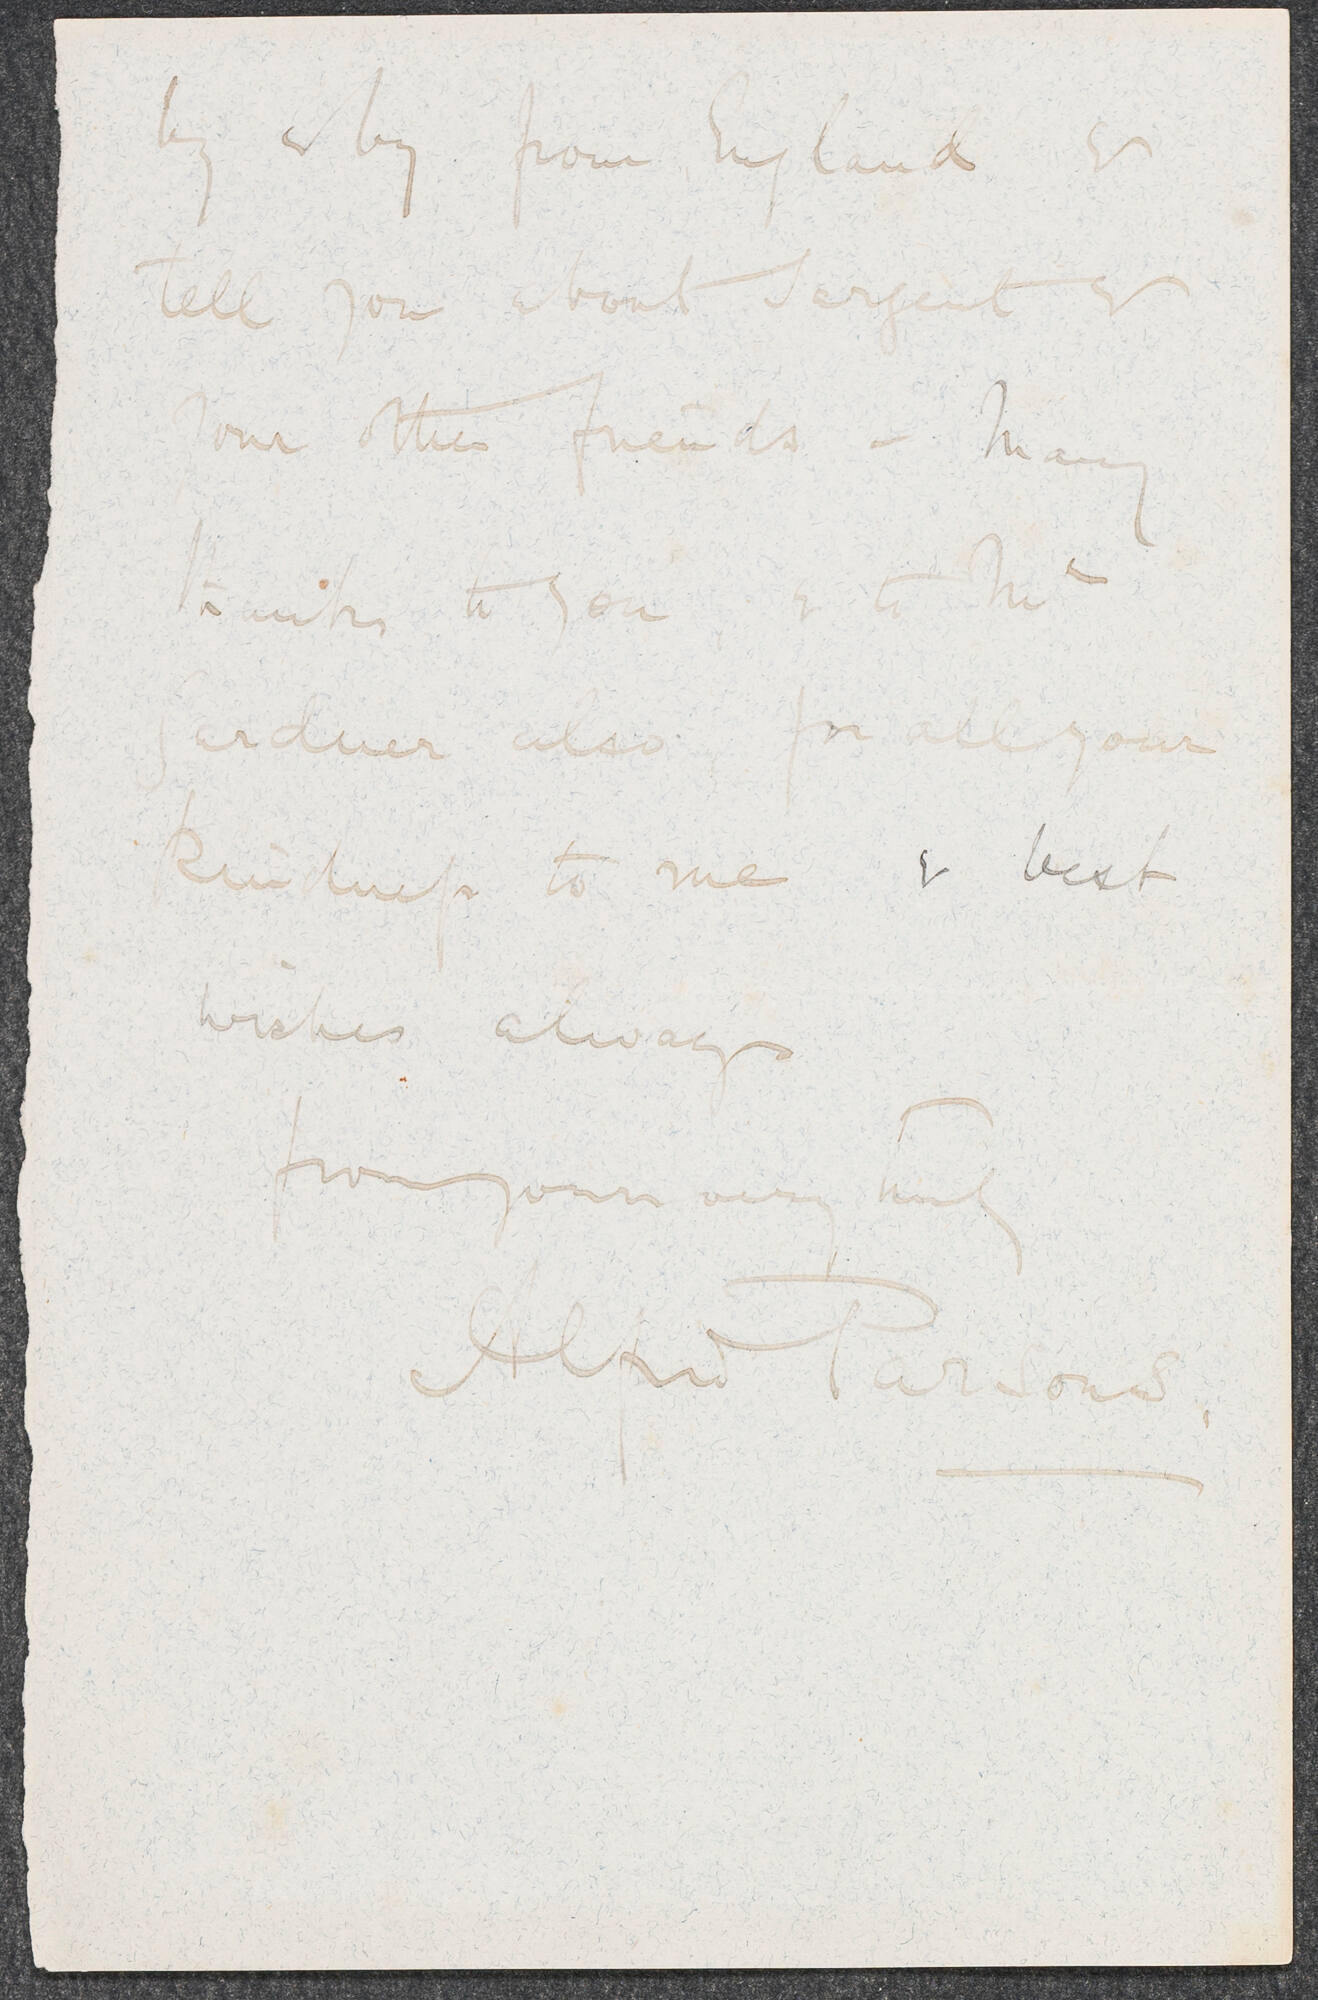 by & by from England &
tell you about Sargent &
your other friends - Many
thanks to you & to Mr
Gardner also for all your
kindness to me & best
wishes always
from yours very truly
Alfred Parsons.